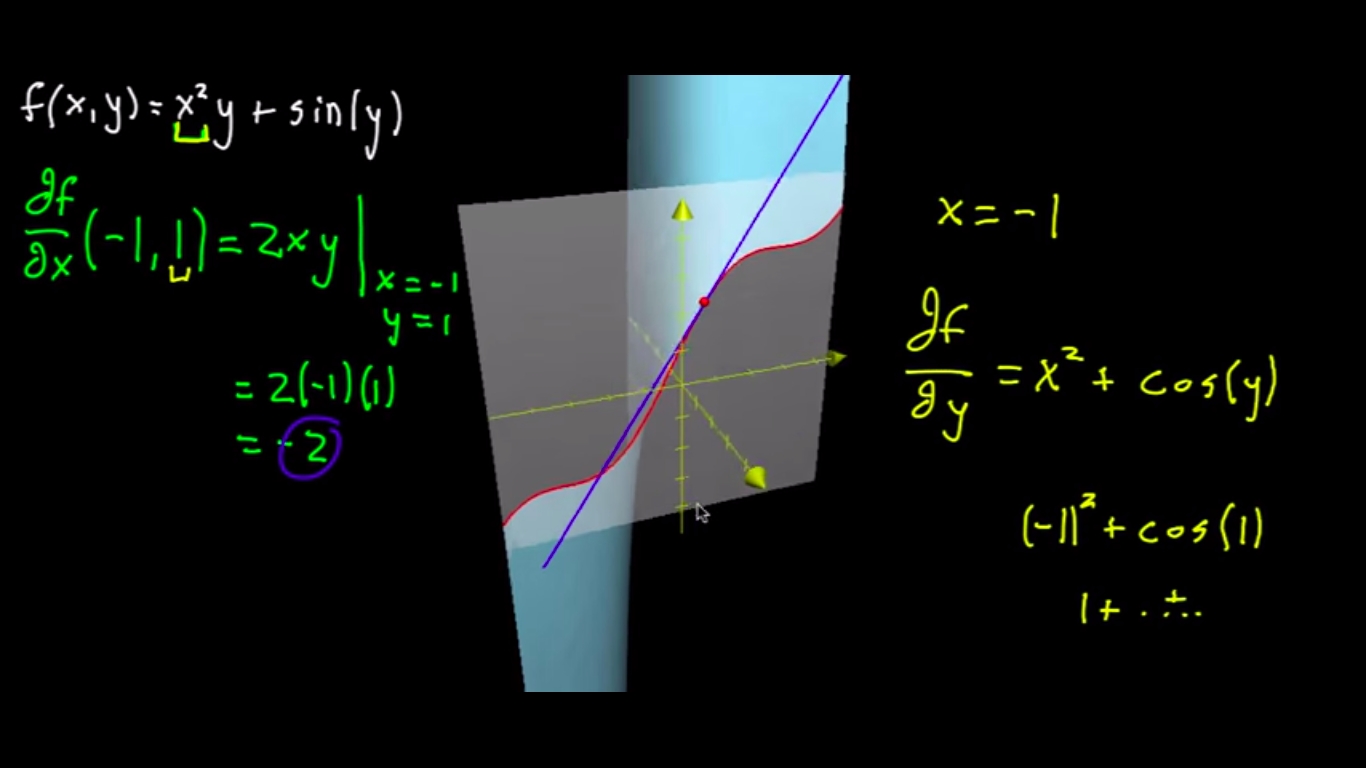 f(x,y) = x²y + sin(y)
∂f/∂x (-1, 1) = 2xy |
x = -1
y = 1
= 2(-1)(1)
= -2
x = -1
∂f/∂y = x² + cos(y)
(-1)² + cos(1)
1 +